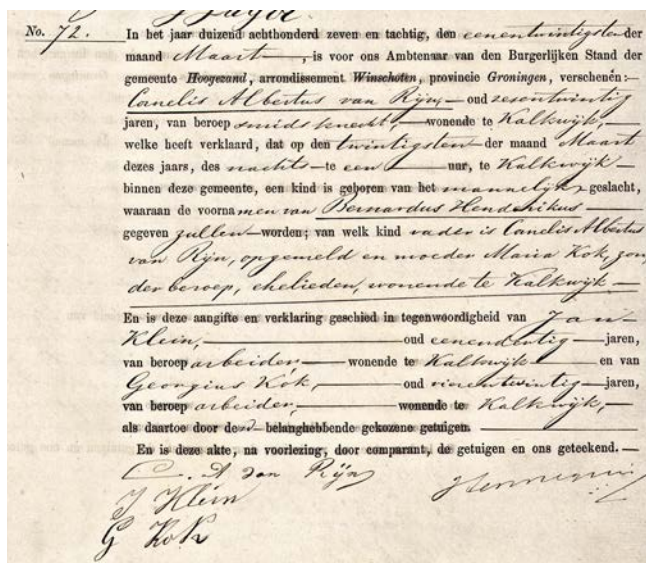 No. 72. In het jaar duizend achthonderd zeven en tachtig, den eenentwintigsten der
maand Maart, is voor ons Ambtenaar van den Burgerlijken Stand der
gemeente Hoogezand, arrondissement Winschoten, provincie Groningen, verschenen:—
Canelis Albertus van Rijn,— oud zesentwintig
jaren, van beroep smidsknecht,— wonende te Kalkwijk,—
welke heeft verklaard, dat op den twintigsten der maand Maart
dezes jaars, des nachts te een — uur, te Kalkwijk —
binnen deze gemeente, een kind is geboren van het mannelijk geslacht,
waaraan de voornamen van Bernardus Hendrikus —
gegeven zullen worden; van welk kind vader is Canelis Albertus
van Rijn, opgemeld en moeder Maria Kok, zon,
der beroep, echelieden, wonende te Kalkwijk —
En is deze aangifte en verklaring geschied in tegenwoordigheid van Jan
Klein,— oud eenendertig — jaren,
van beroep arbeider — wonende te Kalkwijk — en van
Georgius Kok,— oud vierentwintig — jaren,
van beroep arbeider,— wonende te Kalkwijk,—
als daartoe door den belanghebbende gekozene getuigen.—
En is deze akte, na voorlezing, door comparant, de getuigen en ons geteekend.—
C. A van Rijn
J Klein
G Kok